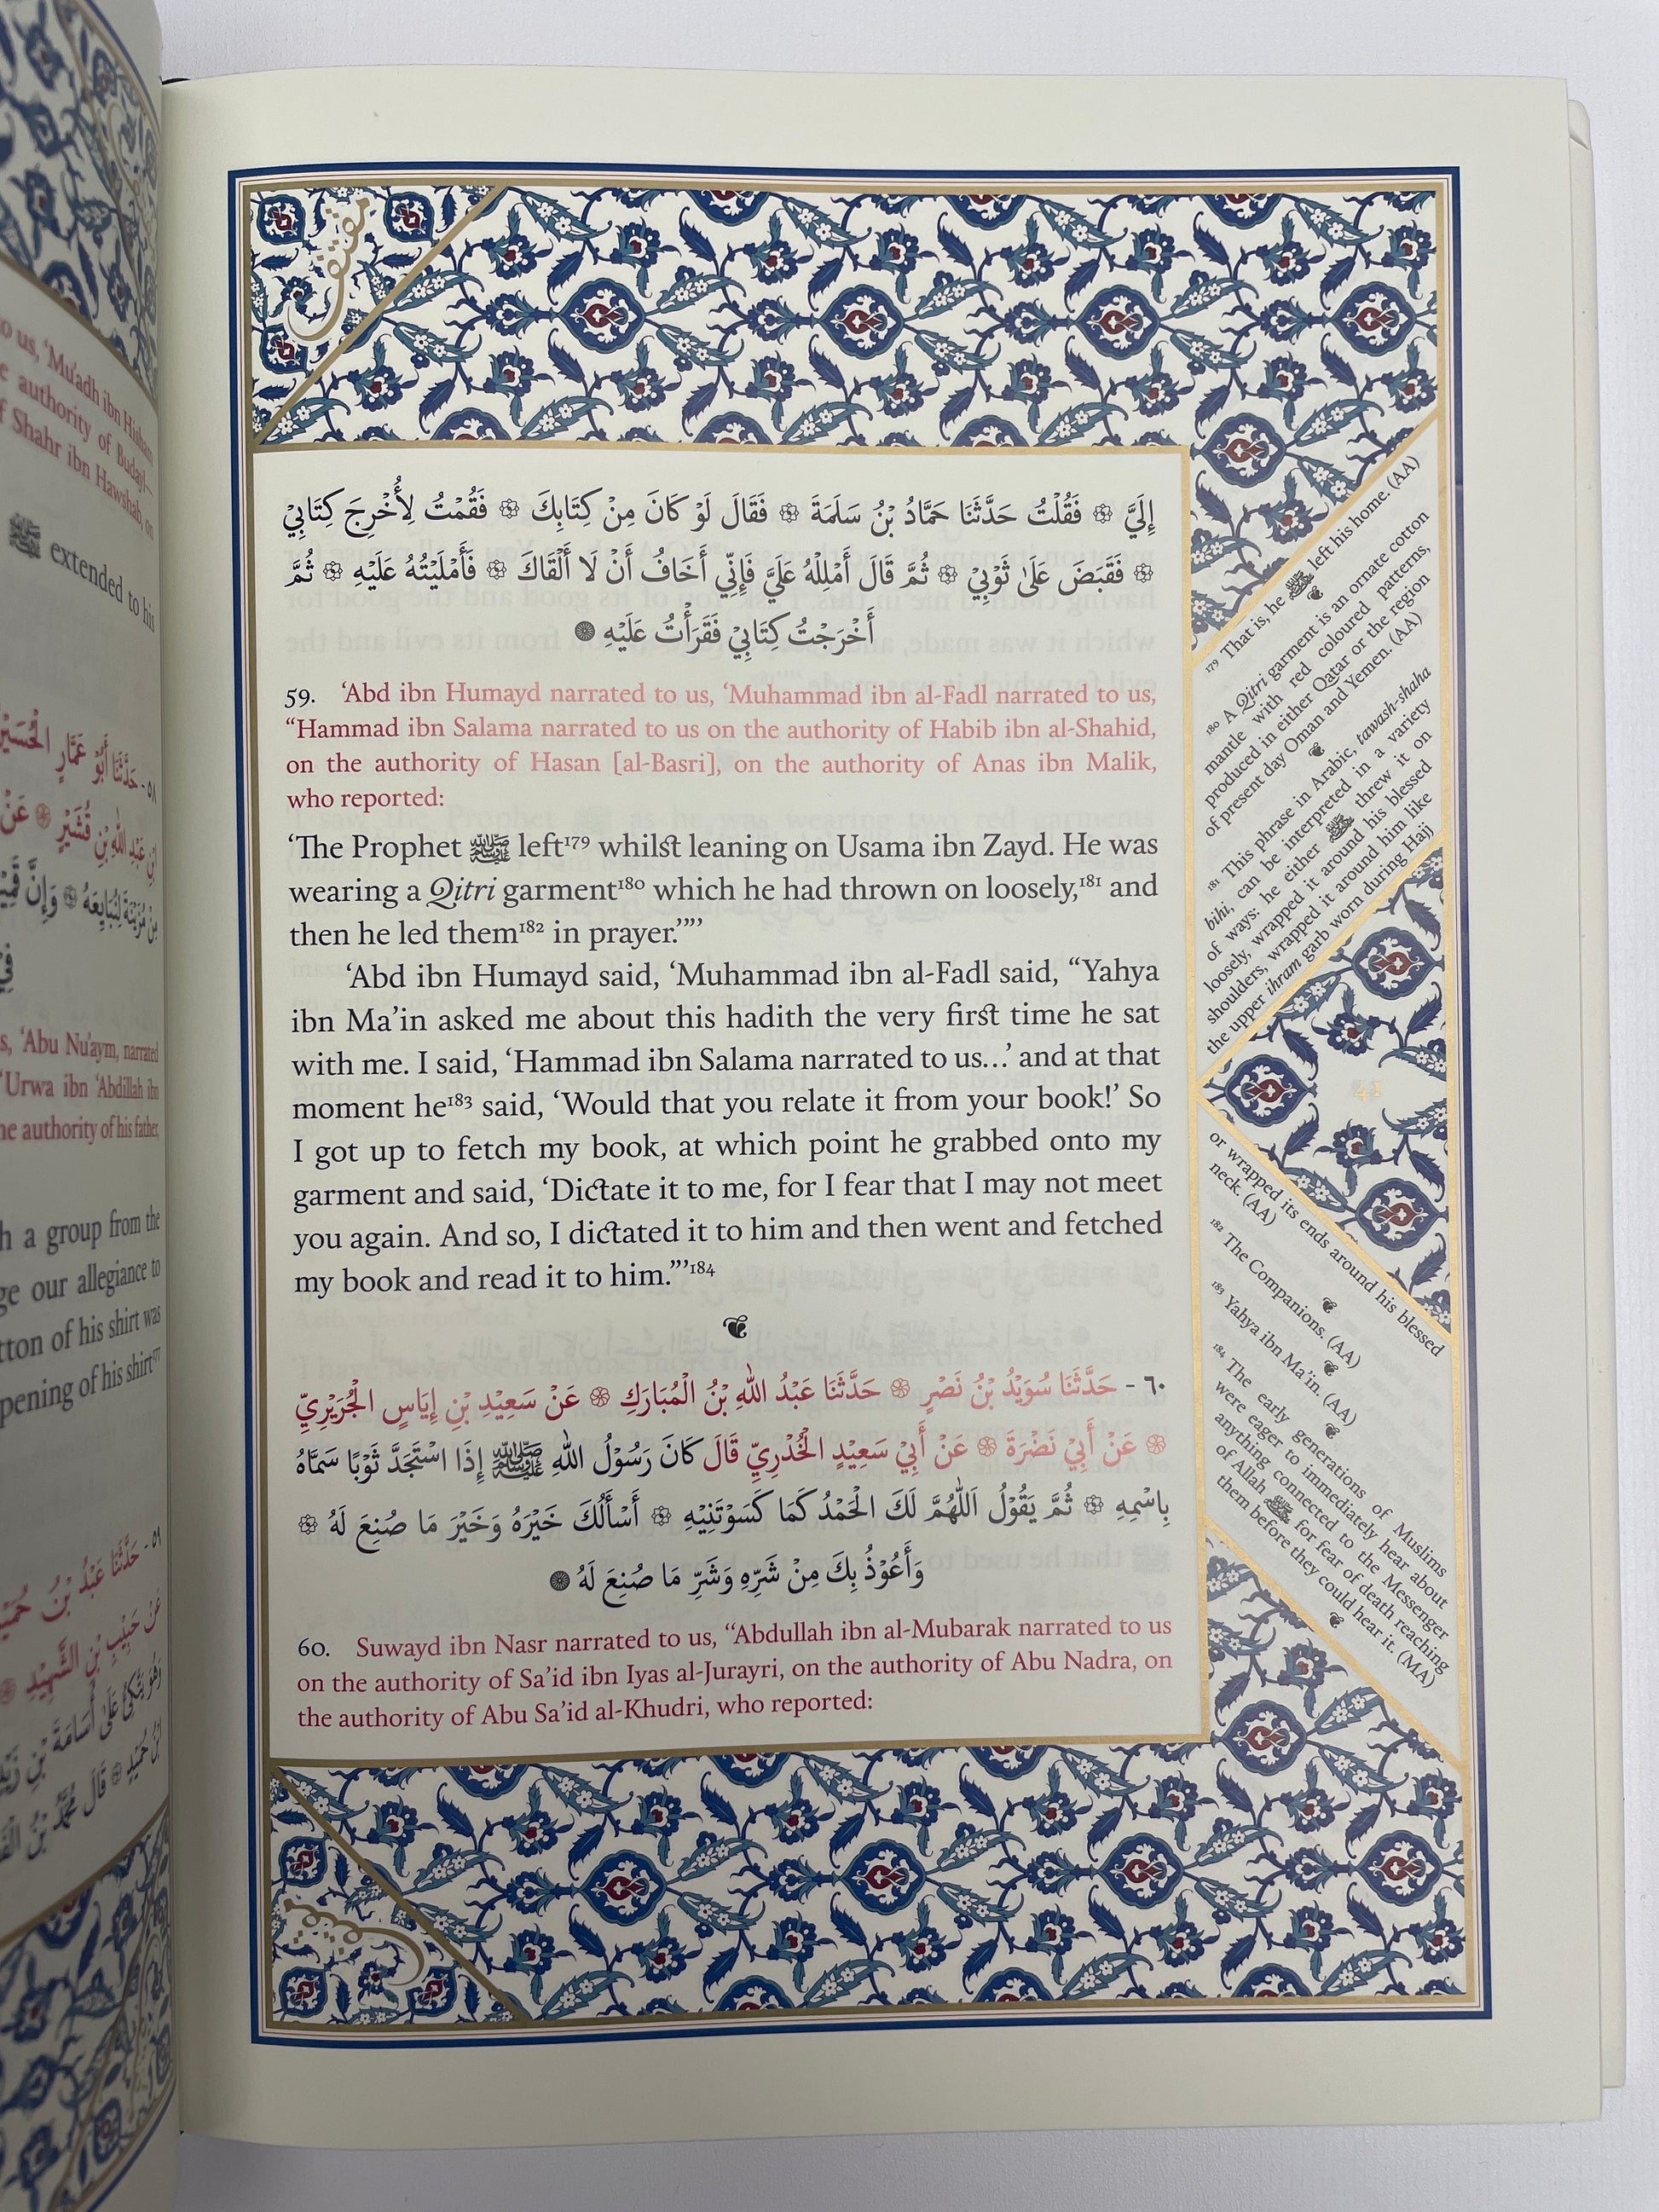 إِلَيَّ ۞ فَقُلْتُ حَدَّثَنَا حَمَّادُ بْنُ سَلَمَةَ ۞ فَقَالَ لَوْ كَانَ مِنْ كِتَابِكَ ۞ فَقُمْتُ لِأُخْرِجَ كِتَابِيْ
۞ فَقَبَضَ عَلَىٰ ثَوْبِيْ ۞ ثُمَّ قَالَ أَمْلِلْهُ عَلَيَّ فَإِنِّي أَخَافُ أَنْ لَا أَلْقَاكَ ۞ فَأَمْلَيْتُهُ عَلَيْهِ ۞ ثُمَّ
أَخْرَجْتُ كِتَابِيْ فَقَرَأْتُ عَلَيْهِ
59. ‘Abd ibn Humayd narrated to us, ‘Muhammad ibn al-Fadl narrated to us,
“Hammad ibn Salama narrated to us on the authority of Habib ibn al-Shahid,
on the authority of Hasan [al-Basri], on the authority of Anas ibn Malik,
who reported:
‘The Prophet ﷺ left¹⁷⁹ whilst leaning on Usama ibn Zayd. He was
wearing a Qitri garment¹⁸⁰ which he had thrown on loosely,¹⁸¹ and
then he led them¹⁸² in prayer.’”’
‘Abd ibn Humayd said, ‘Muhammad ibn al-Fadl said, “Yahya
ibn Ma’in asked me about this hadith the very first time he sat
with me. I said, ‘Hammad ibn Salama narrated to us…’ and at that
moment he¹⁸³ said, ‘Would that you relate it from your book!’ So
I got up to fetch my book, at which point he grabbed onto my
garment and said, ‘Dictate it to me, for I fear that I may not meet
you again. And so, I dictated it to him and then went and fetched
my book and read it to him.”’¹⁸⁴
٦٠ - حَدَّثَنَا سُوَيْدُ بْنُ نَصْرٍ ۞ حَدَّثَنَا عَبْدُ اللهِ بْنُ الْمُبَارَكِ ۞ عَنْ سَعِيْدِ بْنِ إِيَاسٍ الْجُرَيْرِيِّ
۞ عَنْ أَبِيْ نَضْرَةَ ۞ عَنْ أَبِيْ سَعِيْدٍ الْخُدْرِيِّ قَالَ كَانَ رَسُوْلُ اللهِ ﷺ إِذَا اسْتَجَدَّ ثَوْبًا سَمَّاهُ
بِاسْمِهِ ۞ ثُمَّ يَقُوْلُ اَللّٰهُمَّ لَكَ الْحَمْدُ كَمَا كَسَوْتَنِيْهِ ۞ أَسْأَلُكَ خَيْرَهُ وَخَيْرَ مَا صُنِعَ لَهُ ۞
وَأَعُوْذُ بِكَ مِنْ شَرِّهِ وَشَرِّ مَا صُنِعَ لَهُ
60. Suwayd ibn Nasr narrated to us, “Abdullah ibn al-Mubarak narrated to us
on the authority of Sa’id ibn Iyas al-Jurayri, on the authority of Abu Nadra, on
the authority of Abu Sa’id al-Khudri, who reported:
¹⁷⁹ That is, he ﷺ left his home. (AA)
¹⁸⁰ A Qitri garment is an ornate cotton
mantle with red coloured patterns,
produced in either Qatar or the region
of present day Oman and Yemen. (AA)
¹⁸¹ This phrase in Arabic, tawash-shaha
bihi, can be interpreted in a variety
of ways: he either ﷺ threw it on
loosely, wrapped it around his blessed
shoulders, wrapped it around him like
the upper ihram garb worn during Hajj
41
or wrapped its ends around his blessed
neck. (AA)
¹⁸² The Companions. (AA)
¹⁸³ Yahya ibn Ma’in. (AA)
¹⁸⁴ The early generations of Muslims
were eager to immediately hear about
anything connected to the Messenger
of Allah ﷺ for fear of death reaching
them before they could hear it. (MA)
to us, ‘Mu‘adh ibn Hisham
authority of Budayl—
Shahr ibn Hawshab, on
ﷺ extended to his
‘Abu Nu‘aym, narrated
‘Urwa ibn ‘Abdillah ibn
authority of his father,
a group from the
our allegiance to
of his shirt was
of his shirt¹⁷⁷